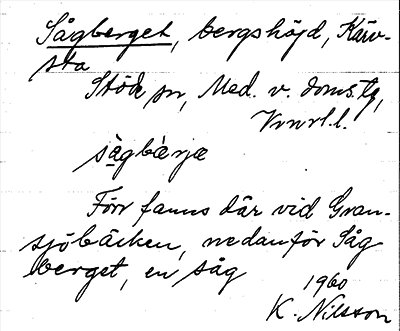 Sågberget, bergshöjd, Kärv-
sta
Stöde sn, Med. v. doms.tg,
Vnrl.l.
sågbærjæ
Förr fanns där vid Gran-
sjöbäcken, nedanför Såg
berget, en såg
1960
K. Nilsson